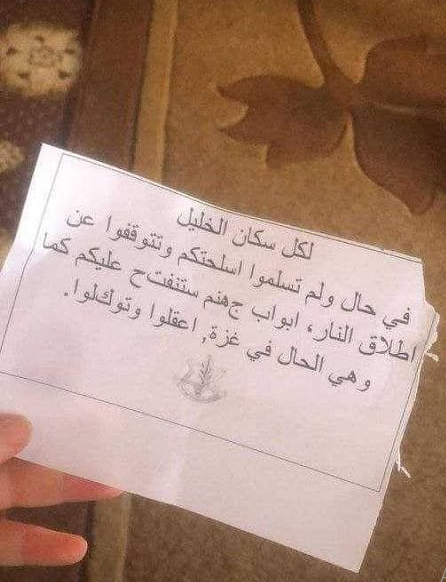 لكل سكان الخليل
في حال ولم تسلموا اسلحتكم وتتوقفوا عن
اطلاق النار، ابواب جهنم ستنفتح عليكم كما
وهي الحال في غزة, اعقلوا وتوكلوا.